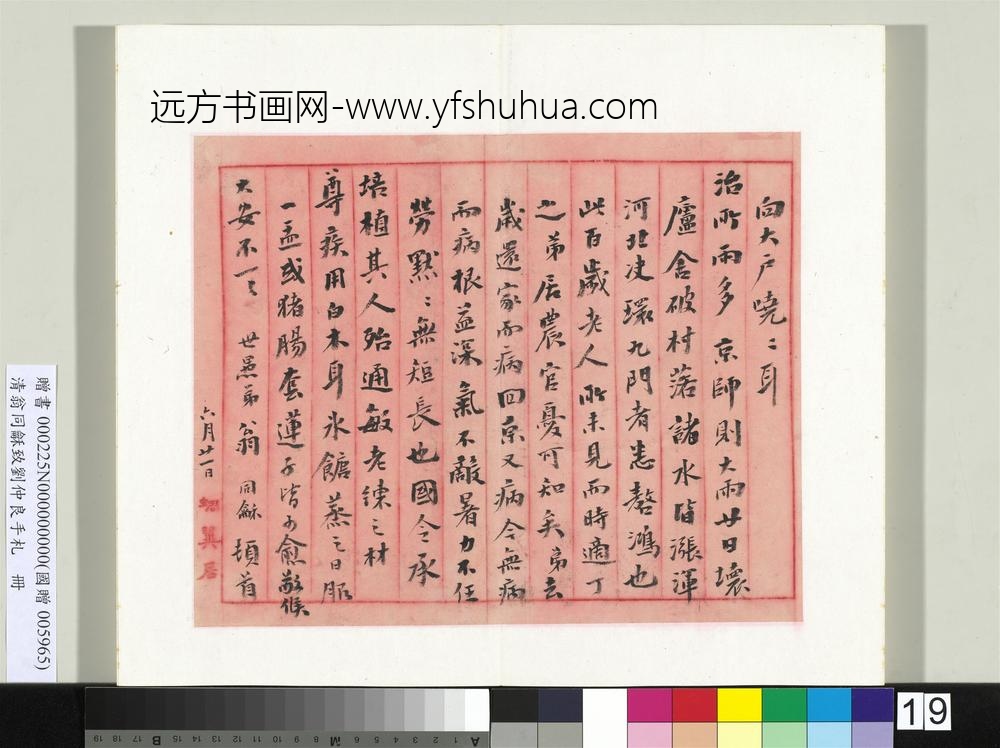 远方书画网-www.yfshuhua.com
向大戶嘵〻耳
治所雨多京師則大雨廿日壞
廬舍破村落諸水皆漲渾
河北決環九門者悉嗸鴻也
此百歲老人所未見而時適丁
之弟居農官憂可知矣弟去
歲還家而病回京又病今無病
而病根益深氣不敵暑力不任
勞默〻無短長也國令承
培植其人殆通敏老練之材
尊疾用白木耳冰餹蒸之日服
一盂或豬腸套蓮子皆可愈敬候
大安不一〻 世愚弟翁同龢頓首
六月廿一日
贈書 000225N000000000(國贈 005965)
清翁同龢致劉仲良手札 冊
19
19 18 17 16 15 14 13 12 11 10 9 8 7 6 5 4 3 2 1
B M A